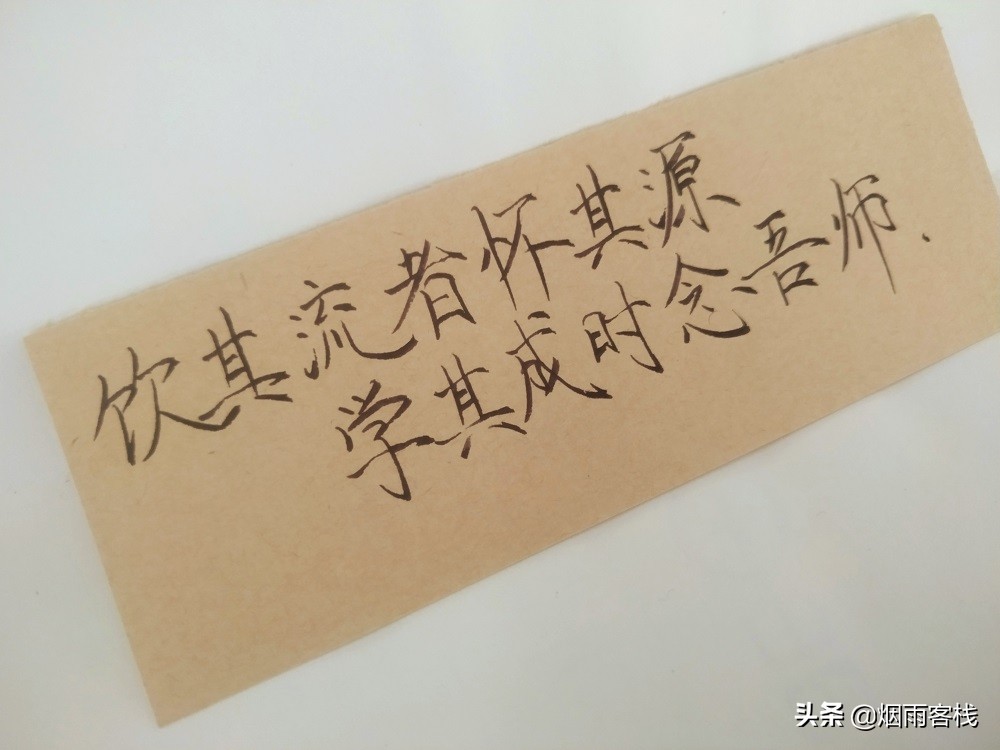 饮其流者怀其源
学其成时念吾师.
头条 @烟雨客栈